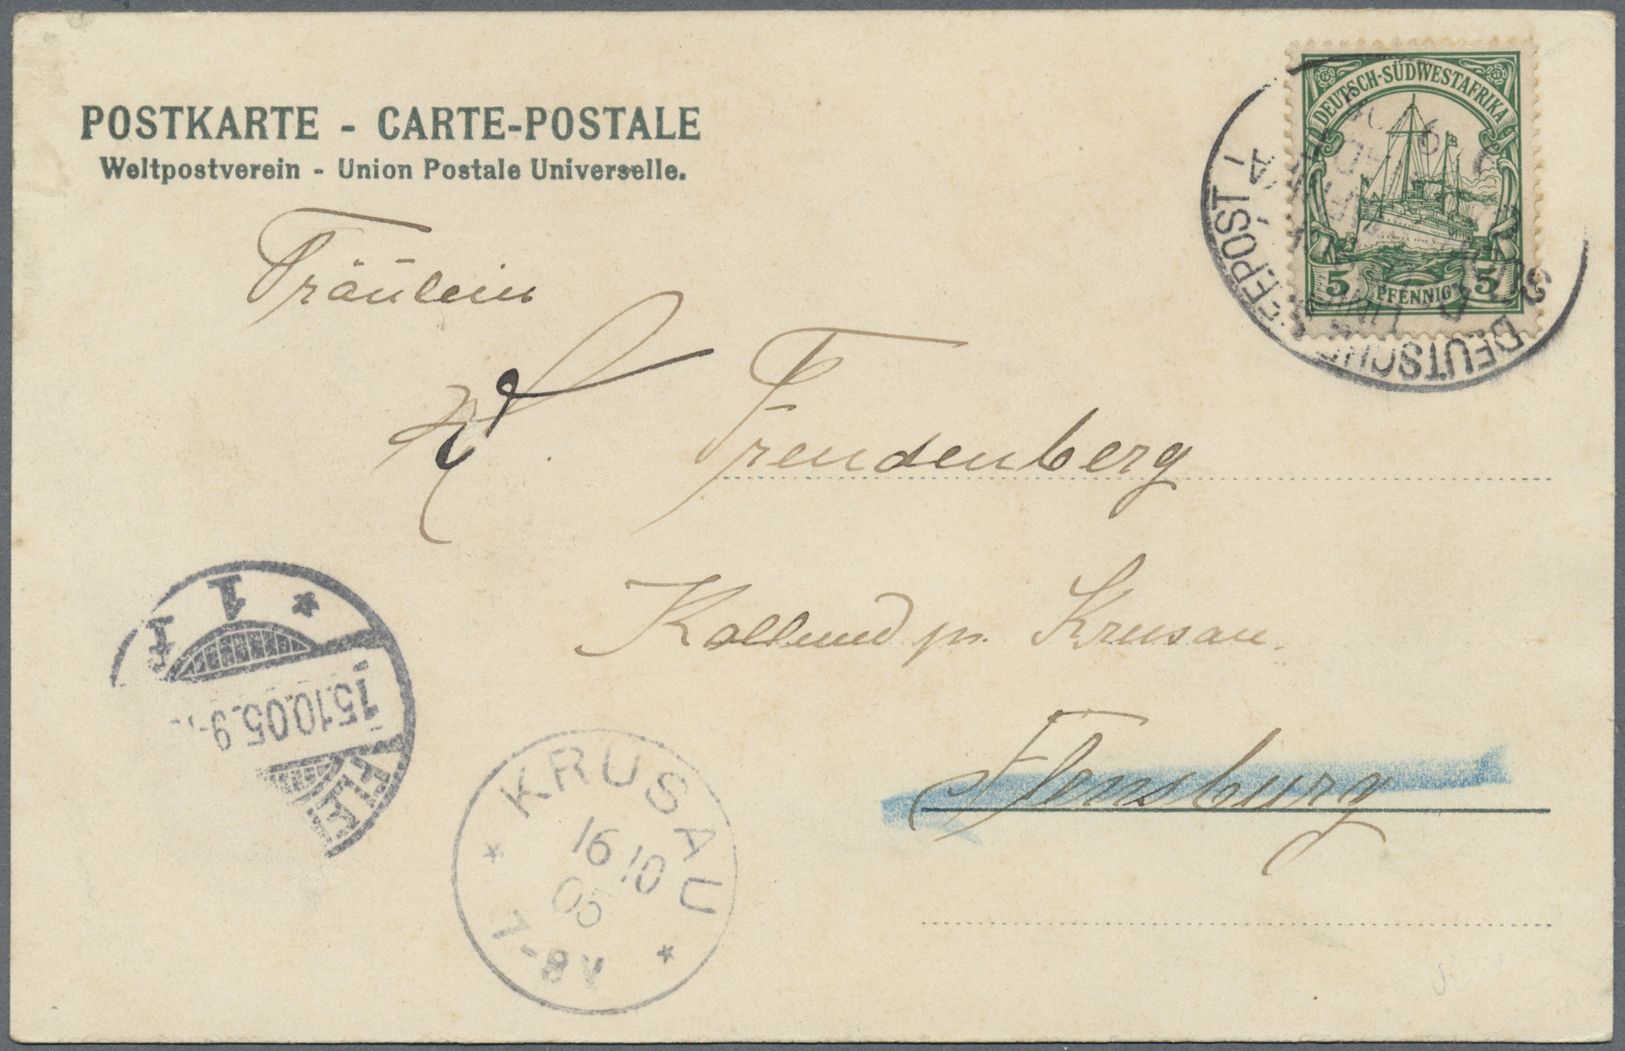 POSTKARTE - CARTE-POSTALE
Weltpostverein - Union Postale Universelle.
DEUTSCH-SÜDWESTAFRIKA
5 PFENNIG 5
DEUTSCHE SEEPOST
LINIE
Fräulein
Freudenberg
Kollund pr. Krusau.
Flensburg
* 1
15.10.05.9-
FLE
KRUSAU
16 10
05
* 7-8V *